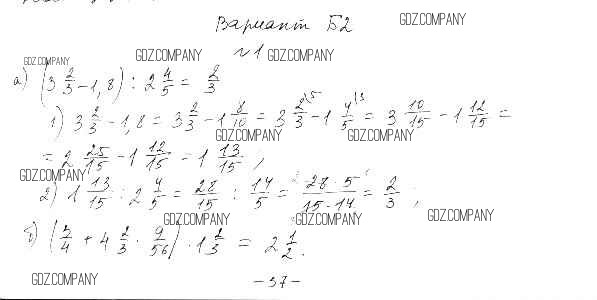 Вариант Б2
GDZ.COMPANY
GDZ.COMPANY
GDZ.COMPANY
№1
GDZ.COMPANY
а) (3 2/3 - 1,8) : 2 4/5 = 2/3
1) 3 2/3 - 1,8 = 3 2/3 - 1 8/10 = 3 2/3 \5 - 1 4/5 \3 = 3 10/15 - 1 12/15 =
GDZ.COMPANY
GDZ.COMPANY
= 2 25/15 - 1 12/15 = 1 13/15,
GDZ.COMPANY
2) 1 13/15 : 2 4/5 = 28/15 : 14/5 = 28·5/15·14 = 2/3;
GDZ.COMPANY
GDZ.COMPANY
GDZ.COMPANY
б) ( /4 + 4 2/3 · 9/56) · 1 /3 = 2 1/2.
GDZ.COMPANY
-37-